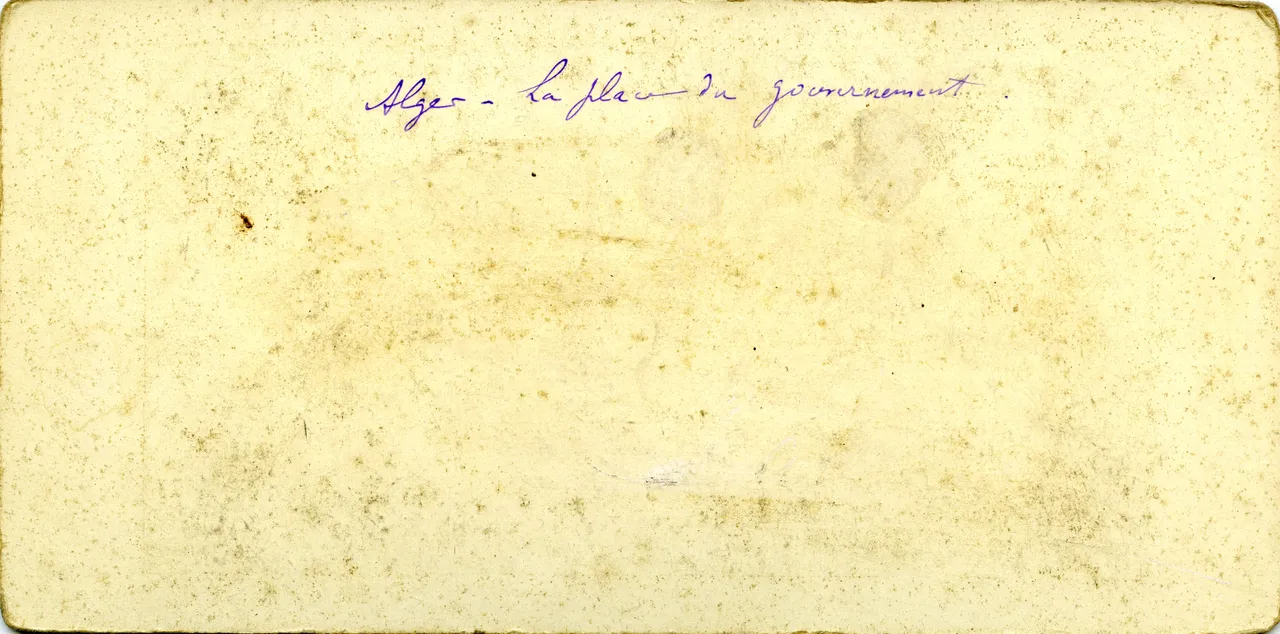 Alger - La place du gouvernement.